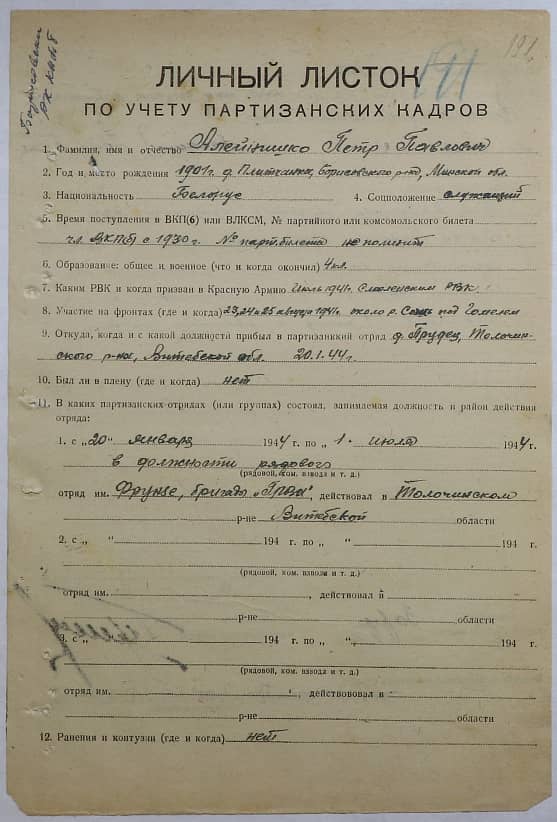 Борисовский
РК КП(б)Б
191.
191
ЛИЧНЫЙ ЛИСТОК
ПО УЧЕТУ ПАРТИЗАНСКИХ КАДРОВ
1. Фамилия, имя и отчество Алейнишко Петр Павлович
2. Год и место рождения 1901 г. д. Плитчанка, Борисовского р-на, Минской обл.
3. Национальность Белорус 4. Соцположение служащий
5. Время поступления в ВКП(б) или ВЛКСМ, № партийного или комсомольского билета
чл. ВКП(б) с 1930 г. № парт. билета не помнит
6. Образование: общее и военное (что и когда окончил) 4 кл.
7. Каким РВК и когда призван в Красную Армию Июль 1941 г. Смолевичским РВК
8. Участие на фронтах (где и когда) 23, 24 и 25 августа 1941 г. около р. Сож под Гомелем
9. Откуда, когда и с какой должности прибыл в партизанский отряд д. Прудец, Толочин-
ского р-на, Витебской обл. 20.1.44 г.
10. Был ли в плену (где и когда) нет
11. В каких партизанских отрядах (или группах) состоял, занимаемая должность и район действия
отряда:
1. с „20" января 1944 г. по „1" июля 1944 г.
в должности рядового
(рядовой, ком. взвода и т. д.)
отряд им. Фрунзе, бригады „Гроза", действовал в Толочинском
р-не Витебской области
2. с „ " 194 г. по „ " 194 г.
(рядовой, ком. взвода и т. д.)
отряд им. , действовал в
р-не области
3. с „ " 194 г. по „ " 194 г.
(рядовой, ком. взвода и т. д.)
отряд им. , действововал в
р-не области
12. Ранения и контузки (где и когда) нет